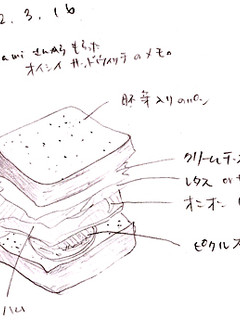 2.3.16
awi さんから もらった
オイシイ サンドウィッチ のメモ
胚芽入りのパン
クリームチーズ
レタス or サ
オニオン
ピクルス
ハム